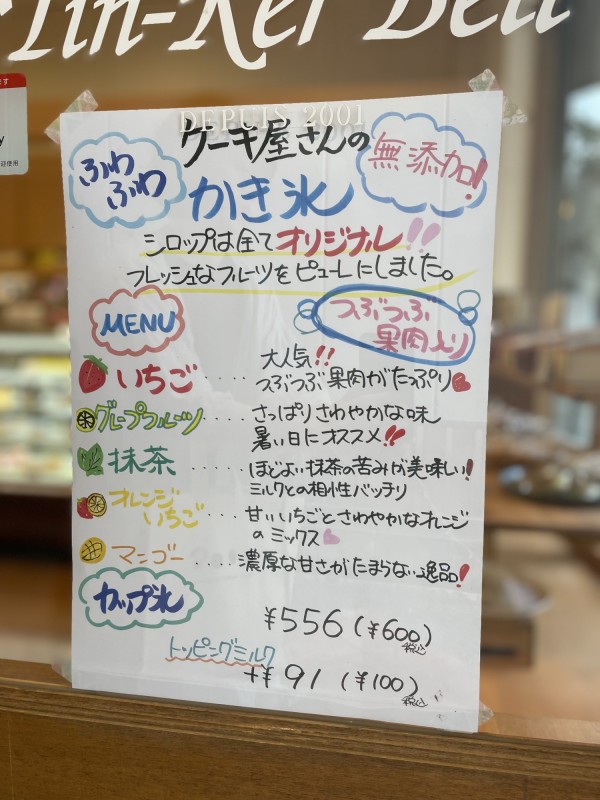 Tin-Ker Bell
DEPUIS 2001
ケーキ屋さんの
ふわ
ふわ
無添加!
かき氷
シロップは全てオリジナル!!
フレッシュなフルーツをピューレにしました。
MENU
つぶつぶ
果肉入り
いちご ‥‥ 大人気!!
つぶつぶ果肉がたっぷり
グレープフルーツ ‥‥ さっぱりさわやかな味
暑い日にオススメ!!
抹茶 ‥‥‥ ほどよい抹茶の苦みが美味しい!
ミルクとの相性バッチリ
オレンジ
いちご ‥‥ 甘いいちごとさわやかなオレンジ
のミックス
マンゴー ‥‥ 濃厚な甘さがたまらない逸品!
カップ氷
¥556(¥600)
税込
トッピングミルク
+¥91(¥100)
税込